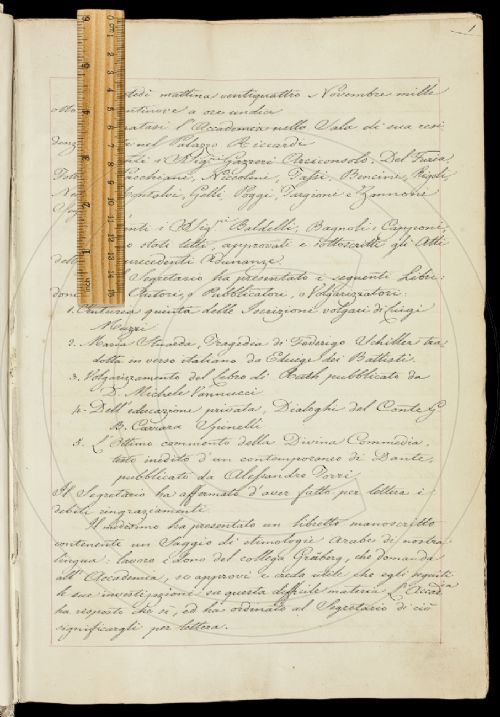 1
tedì mattina ventiquattro Novembre mille
otto antinove a ore undici
ratasi l'Accademia nella Sala di sua resi
denza nel Palazzo Riccardi
nti i Sig.ri Gazzeri Arciconsolo, Del Furia,
Zannoni
nti i Sig.ri Baldelli, Bagnoli, Capponi,
o stati letti, approvati e sottoscritti gli Atti
delle precedenti Adunanze.
Segretario ha presentato i seguenti Libri:
dono Autori, o Pubblicatori, o Volgarizzatori:
1. Centuria quinta delle Iscrizioni volgari di Luigi
Muzzi
2. Maria Stuarda, Tragedia di Federigo Schiller tra-
dotta in verso italiano da Edvige dei Battisti.
3. Volgarizzamento del libro di Ruth pubblicato da
D. Michele Vannucci
4. Dell'educazione privata, Dialoghi del Conte G
B. Carrara Spinelli
5. L'Ottimo commento della Divina Commedia,
testo inedito d'un contemporaneo di Dante,
pubblicato da Alessandro Torri
Il Segretario ha affermato d'aver fatti per lettera i
debiti ringraziamenti
Il medesimo ha presentato un libretto manoscritto
contenente un Saggio di etimologie Arabe di nostra
lingua: lavoro e dono del collega Gräberg, che domanda
all'Accademia, se approvi e creda utile che egli seguiti
le sue investigazioni su questa difficile materia. L'Accad.a
ha risposto che sì, ed ha ordinato al Segretario di ciò
significargli per lettera.